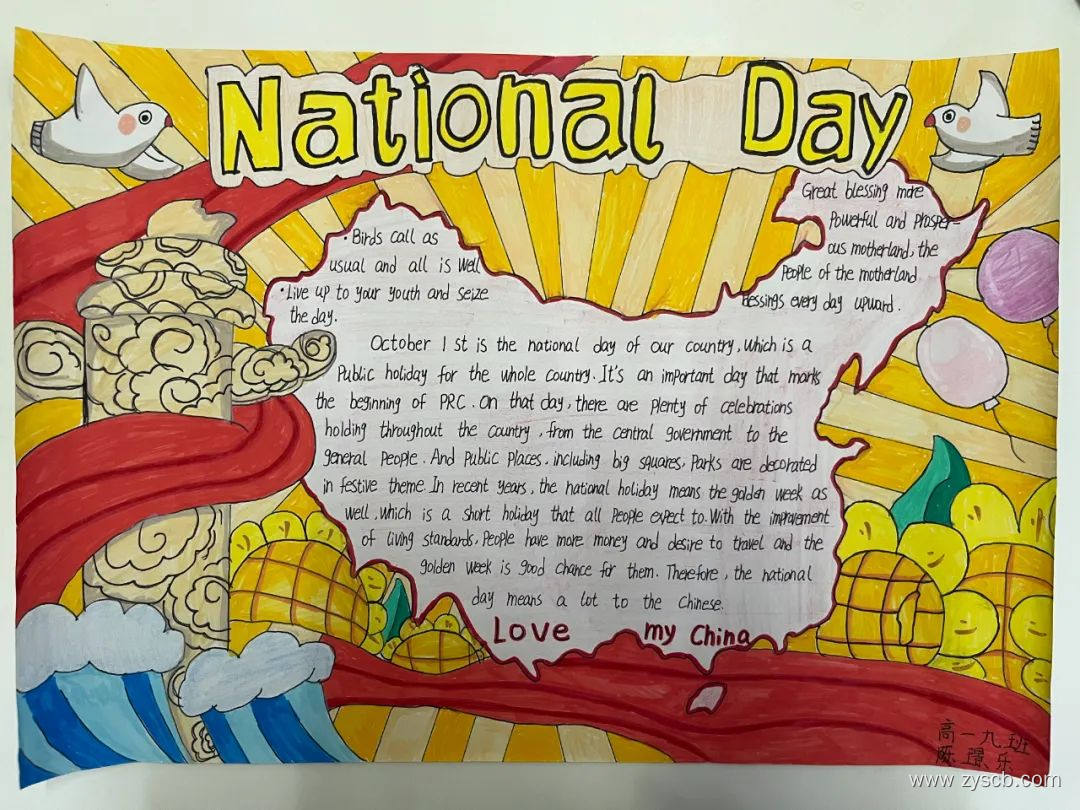 National Day
• Birds call as
usual and all is well
• Live up to your youth and seize
the day.
Great blessing more
Powerful and Prosper-
ous motherland, the
People of the motherland
blessings every day upward.
October 1 st is the national day of our country, which is a
Public holiday for the whole country. It's an important day that marks
the beginning of PRC. On that day, there are plenty of celebrations
holding throughout the country, from the central government to the
general People. And Public Places, including big squares, Parks are decorated
in festive theme In recent years, the national holiday means the golden week as
well, which is a short holiday that all People expect to. With the improvement
of living standards, People have more money and desire to travel and the
golden week is good chance for them. Therefore, the national
day means a lot to the Chinese.
Love my China
高一九班
陈璟乐
www.zyscb.com